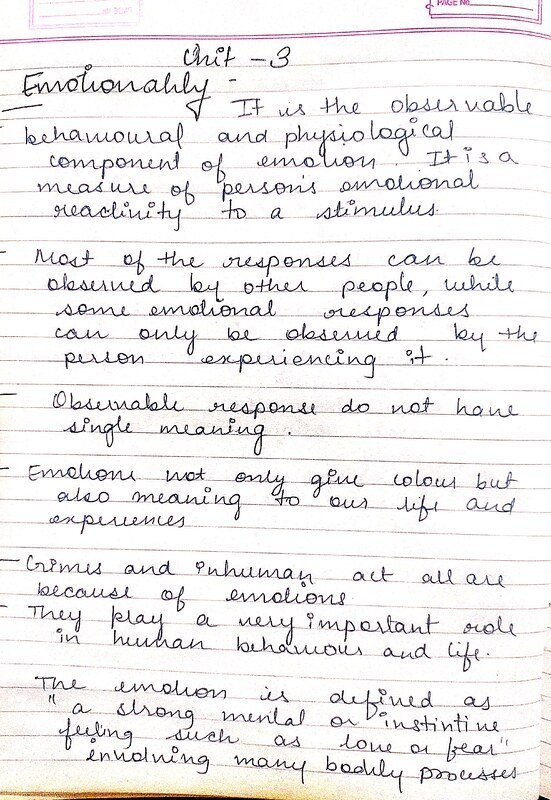 PAGE No.
Unit - 3
Emotionality -
It is the observable
behavioural and physiological
component of emotion. It is a
measure of person's emotional
reactivity to a stimulus.
- Most of the responses can be
observed by other people, while
some emotional responses
can only be observed by the
person experiencing it.
- Observable response do not have
single meaning.
- Emotions not only give colour but
also meaning to our life and
experiences
- Crimes and inhuman act all are
because of emotions
- They play a very important role
in human behaviour and life.
The emotion is defined as
"a strong mental or instintive
feeling such as love or fear"
involving many bodily processes